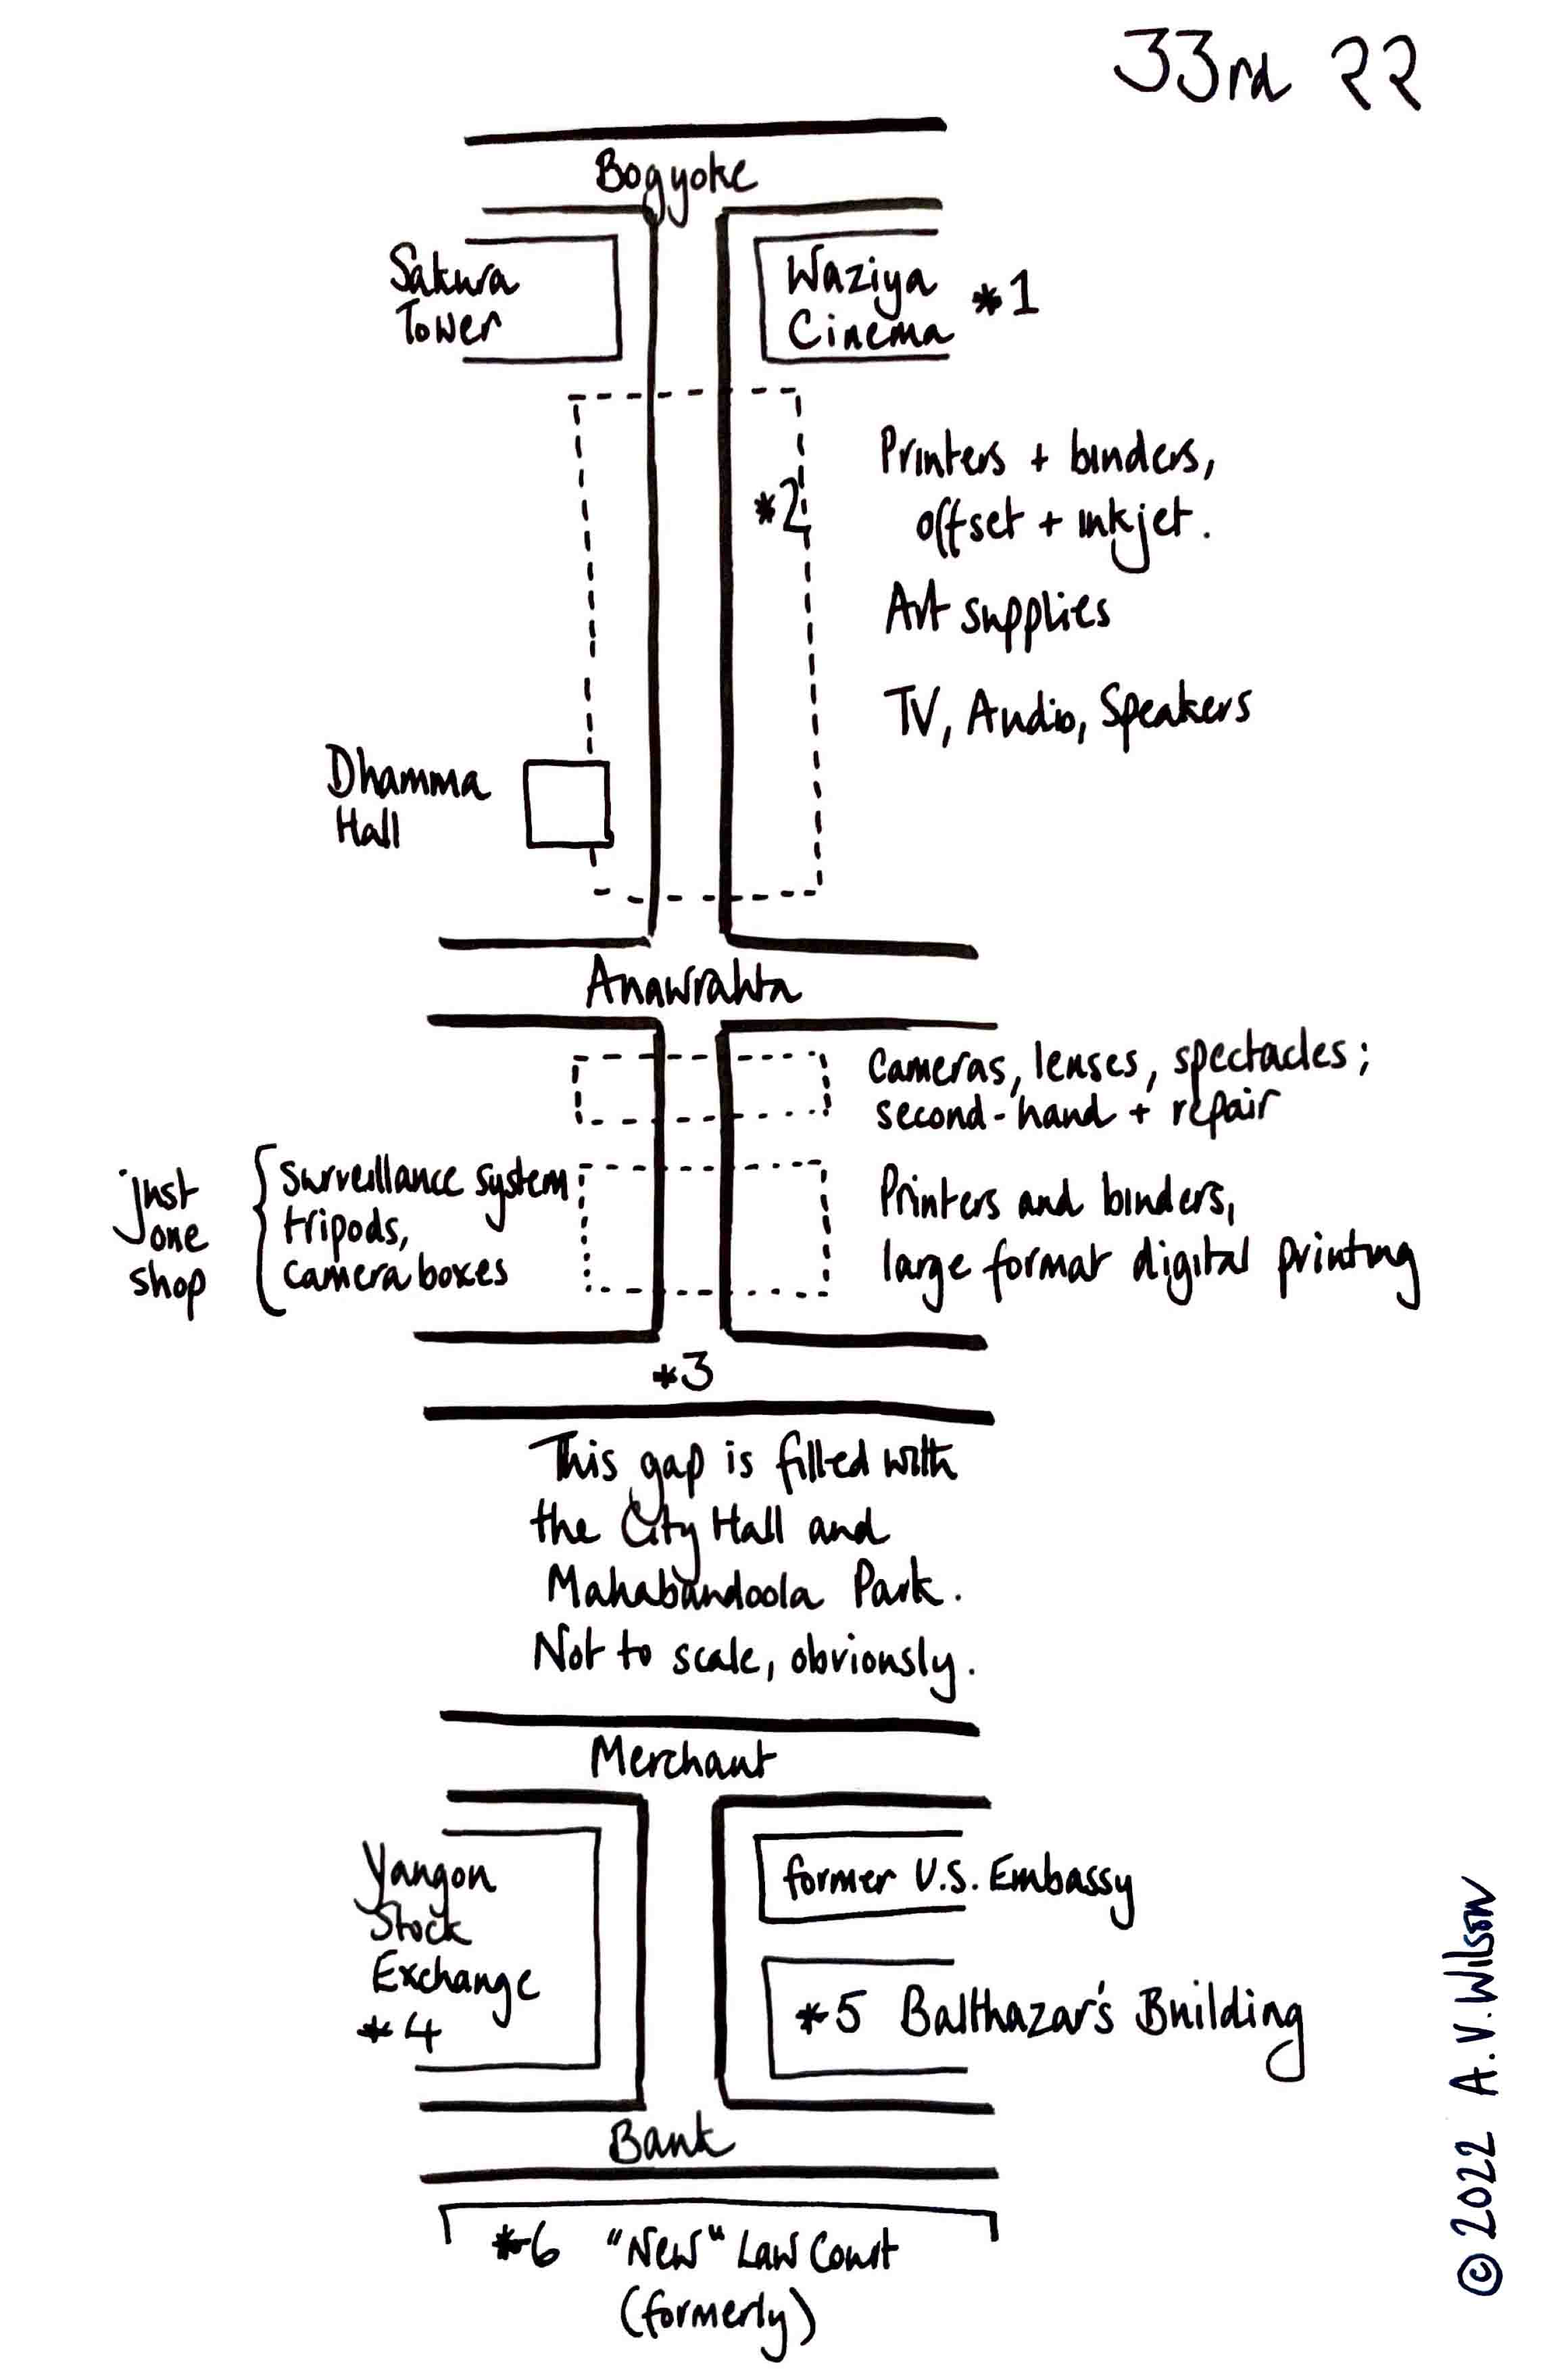 33rd ၃၃
Bogyoke
Sakura
Tower
Waziya
Cinema *1
*2
Printers + binders,
offset + inkjet.
Art supplies
TV, Audio, Speakers
Dhamma
Hall
Anawrahta
Cameras, lenses, spectacles;
second-hand + repair
just
one
shop
surveillance system
tripods,
camera boxes
Printers and binders,
large format digital printing
*3
This gap is filled with
the City Hall and
Mahabandoola Park.
Not to scale, obviously.
Merchant
Yangon
Stock
Exchange
*4
former U.S. Embassy
*5 Balthazar's Building
Bank
*6 "New" Law Court
(formerly)
© 2022 A.V.Wilson